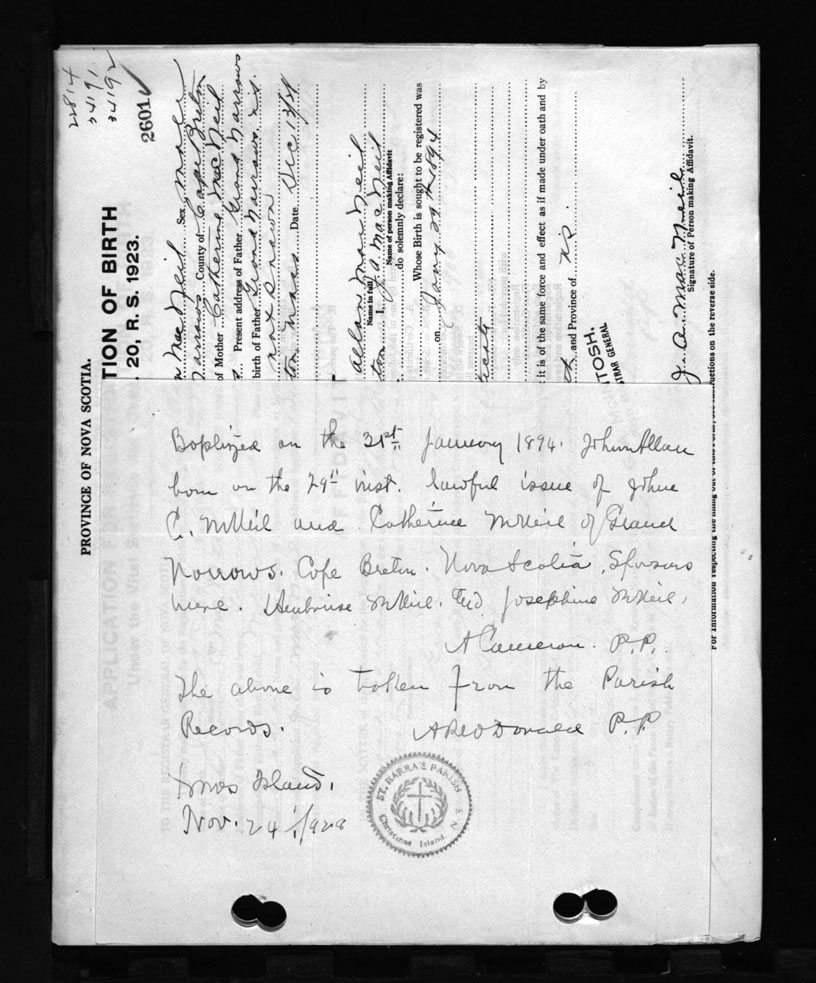 22814
34191
34192
2601
PROVINCE OF NOVA SCOTIA.
TION OF BIRTH
20, R. S. 1923.
Mac Neil Sex Male
Narrows County of Cape Breton
of Mother Catherine MacNeil
Present address of Father Grand Narrows
birth of Father Grand Narrows N.S.
not known
ton Mass Date Dec 12/28
allan MacNeil
Name in full
ton I, J. A. MacNeil
Name of person making Affidavit
do solemnly declare:
Whose Birth is sought to be registered was
on Jany 29th 1894
ficate
t it is of the same force and effect as if made under oath and by
and Province of N.S.
TOSH.
STRAR GENERAL
J. A. MacNeil
Signature of Person making Affidavit.
For information respecting the filling out of this Form, see instructions on the reverse side.
Baptized on the 31st January 1894. John Allan
born on the 29th inst. lawful issue of John
C. McNeil and Catherine McNeil of Grand
Narrows. Cape Breton. Nova Scotia. Sponsors
were. Ambroise McNeil. and Josephine McNeil,
A Cameron. P.P.
The above is taken from the Parish
Records.
A R McDonald P.P.
Xmas Island.
Nov. 24th, 1928
ST. BARRA'S PARISH
Christmas Island, N. S.